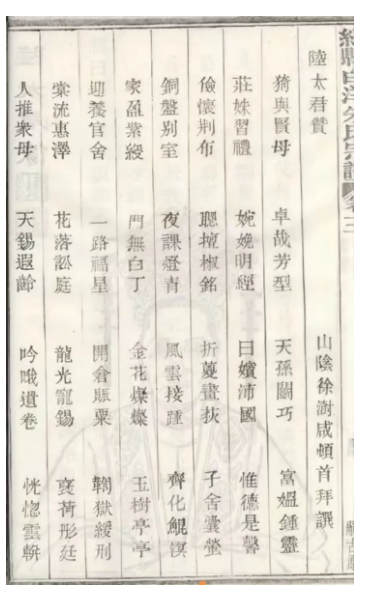 朱氏宗譜
陸太君贊
山陰徐澍咸頓首拜譔
猗與賢母 卓哉芳型 天孫鬭巧 富媼鍾靈
莊姝習禮 婉娩明經 曰嬪沛國 惟德是馨
儉懷荆布 聰擅椒銘 折蔓畫荻 子舍囊螢
銅盤别室 夜課燈青 風雲接踵 齊化鯤溟
家盈紫綬 門無白丁 金花燦燦 玉樹亭亭
迎養官舍 一路福星 開倉賑粟 鞫獄緩刑
棠流惠澤 花落訟庭 龍光寵錫 褒荷彤廷
人推衆母 天錫遐齡 吟哦遺卷 恍惚雲軿